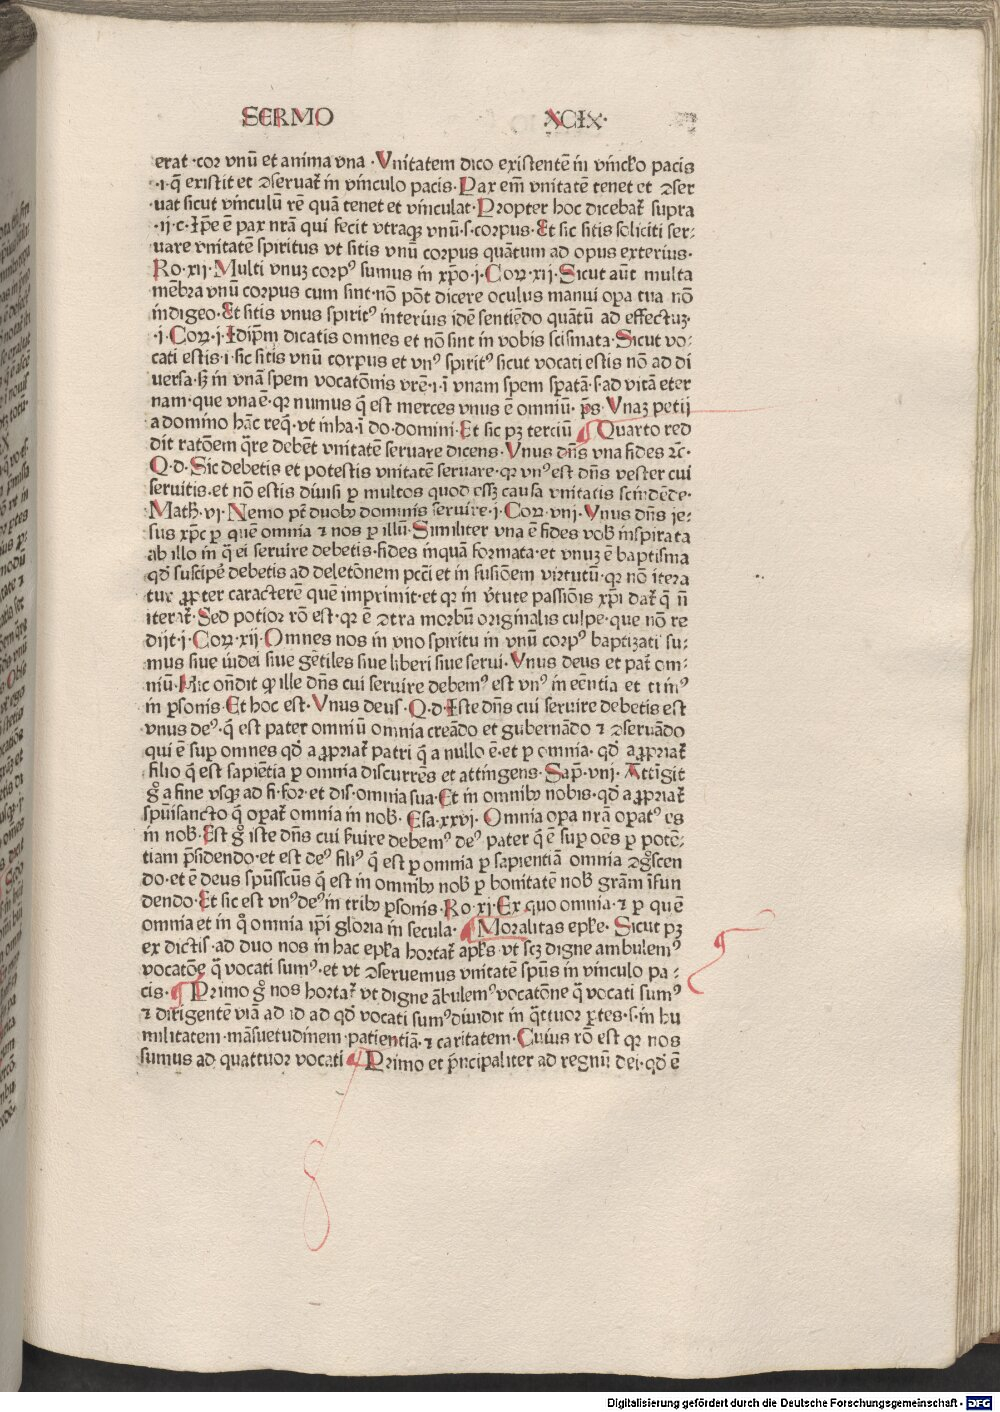 SERMO ·XCIX·
erat ·cor vnū et anima vna ·Vnitatem dico existentē in vincko pacis
·i·q̄ existit et ꝯseruat̄ in vinculo pacis·Pax em̄ vnitatē tenet et ꝯser
uat sicut vinculū rē quā tenet et vinculat·Propter hoc dicebat̄ supra
·ij·c·Ip̄e ē pax nr̄a qui fecit vtraqꝫ vnū·s·corpus·Et sic sitis soliciti ser⸗
uare vnitatē spiritus vt sitis vnū corpus quātum ad opus exterius·
Ro·xij·Multi vnuꝫ corpꝰ sumus in xp̄o·j·Corꝝ·xij·Sicut aūt multa
mēbra vnū corpus cum sint·nō pōt dicere oculus manui oꝑa tua nō
indigeo·Et sitis vnus spiritꝰ interius idē sentiēdo quātū ad effectuꝫ·
·j·Corꝝ·j·Idip̄m dicatis omnes et nō sint in vobis scismata·Sicut vo⸗
cati estis·i·sic sitis vnū corpus et vnꝰ spiritꝰ sicut vocati estis nō ad di
uersa·sꝫ in vnā spem vocatōnis vrē·i·ī vnam spem spatā·s·ad vitā eter
nam·que vna ē·qꝛ numus q̄ est merces vnus ē omniū· p̄s·Vnaꝫ petij
a domino hāc req̄·vt inha·ī do·domini·Et sic pꝫ terciū ¶Quarto red
dit ratōem q̄re debēt vnitatē seruare dicens·Vnus dn̄s vna fides ⁊c̄·
Q·d·Sic debetis et potestis vnitatē seruare·qꝛ vnꝰ est dn̄s vester cui
seruitis·et nō estis diuisi ꝑ multos quod essꝫ causa vnitatis scindēde·
Math̄·vi·Nemo pōt duobꝫ dominis seruire·j·Corꝝ·viij·Vnus dn̄s ie⸗
sus xp̄c ꝑ quē omnia ⁊ nos ꝑ illū·Similiter vna ē fides vob̄ inspirata
ab illo in q̄ ei seruire debetis·fides inquā formata·et vnuꝫ ē baptisma
qd̄ suscipe debetis ad deletōnem pcc̄i et in fusiōem virtutū·qꝛ nō itera
tur ꝓpter caracterē quē imprimit·et qꝛ in v̄tute passiōis xp̄i dat̄ q̄ n̄
iterat̄·Sed potior rō est·qꝛ ē ꝯtra morbū originalis culpe·que nō re
dijt·j·Corꝝ·xij·Omnes nos in vno spiritu in vnū corpꝰ baptizati su⸗
mus siue iudei siue gētiles siue liberi siue serui·Vnus deus et pat̄ om⸗
niū·Hic ondit ꝙ ille dn̄s cui seruire debemꝰ est vnꝰ in eēntia et trinꝰ
in ꝑsonis·Et hoc est·Vnus deus·Q·d·Iste dn̄s cui seruire debetis est
vnus deꝰ·q̄ est pater omniū omnia creādo et gubernādo ⁊ ꝯseruādo
qui ē suꝑ omnes qd̄ aꝓpriat̄ patri q̄ a nullo ē·et ꝑ omnia· qd̄ aꝓpriat̄
filio q̄ est sapiētia ꝑ omnia discurrēs et attingens·Sap̄·viij·Attīgit
g̊ a fine vsqꝫ ad fi·for·et dis·omnia sua·Et in omnibꝫ nobis·qd̄ aꝓpriat̄
spūisancto q̄ oꝑat̄ omnia in nob̄·Esa·xxvj·Omnia oꝑa nr̄a oꝑatꝰ es
in nob̄·Est g̊ iste dn̄s cui ſuire debemꝰ deꝰ pater q̄ ē suꝑ oēs ꝑ potē⸗
tiam p̄sidendo·et est deꝰ filiꝰ q̄ est ꝑ omnia ꝑ sapientiā omnia ꝯg̊scen
do·et ē deus spūssctūs q̄ est in omnibꝫ nob̄ ꝑ bonitatē nob̄ gr̄am īfun
dendo·Et sic est vnꝰ deꝰ in tribꝫ ꝑsonis·Ro·xj·Ex quo omnia·⁊ ꝑ quē
omnia et in q̊ omnia ip̄i gloria in secula· ¶Moralitas epk̄e·Sicut pꝫ
ex dictis·ad duo nos in hac epk̄a hortat̄ apk̄s·vt scꝫ digne ambulemꝰ
vocatōe q̄ vocati sumꝰ·et vt ꝯseruemus vnitatē spūs in vinculo pa⸗
cis·¶Primo g̊ nos hortat̄ vt digne ābulemꝰ vocatōne q̄ vocati sumꝰ
⁊ dirigentē viā ad id ad qd̄ vocati sumꝰ diuidit in q̄ttuor ꝑtes·s·in hu
militatem·māsuetudinem·patientiā·⁊ caritatem·Cuius rō est qꝛ nos
sumus ad quattuor vocati ¶Primo et p̄ncipaliter ad regnū dei·qd̄ ē
Digitalisierung gefördert durch die Deutsche Forschungsgemeinschaft - DFG